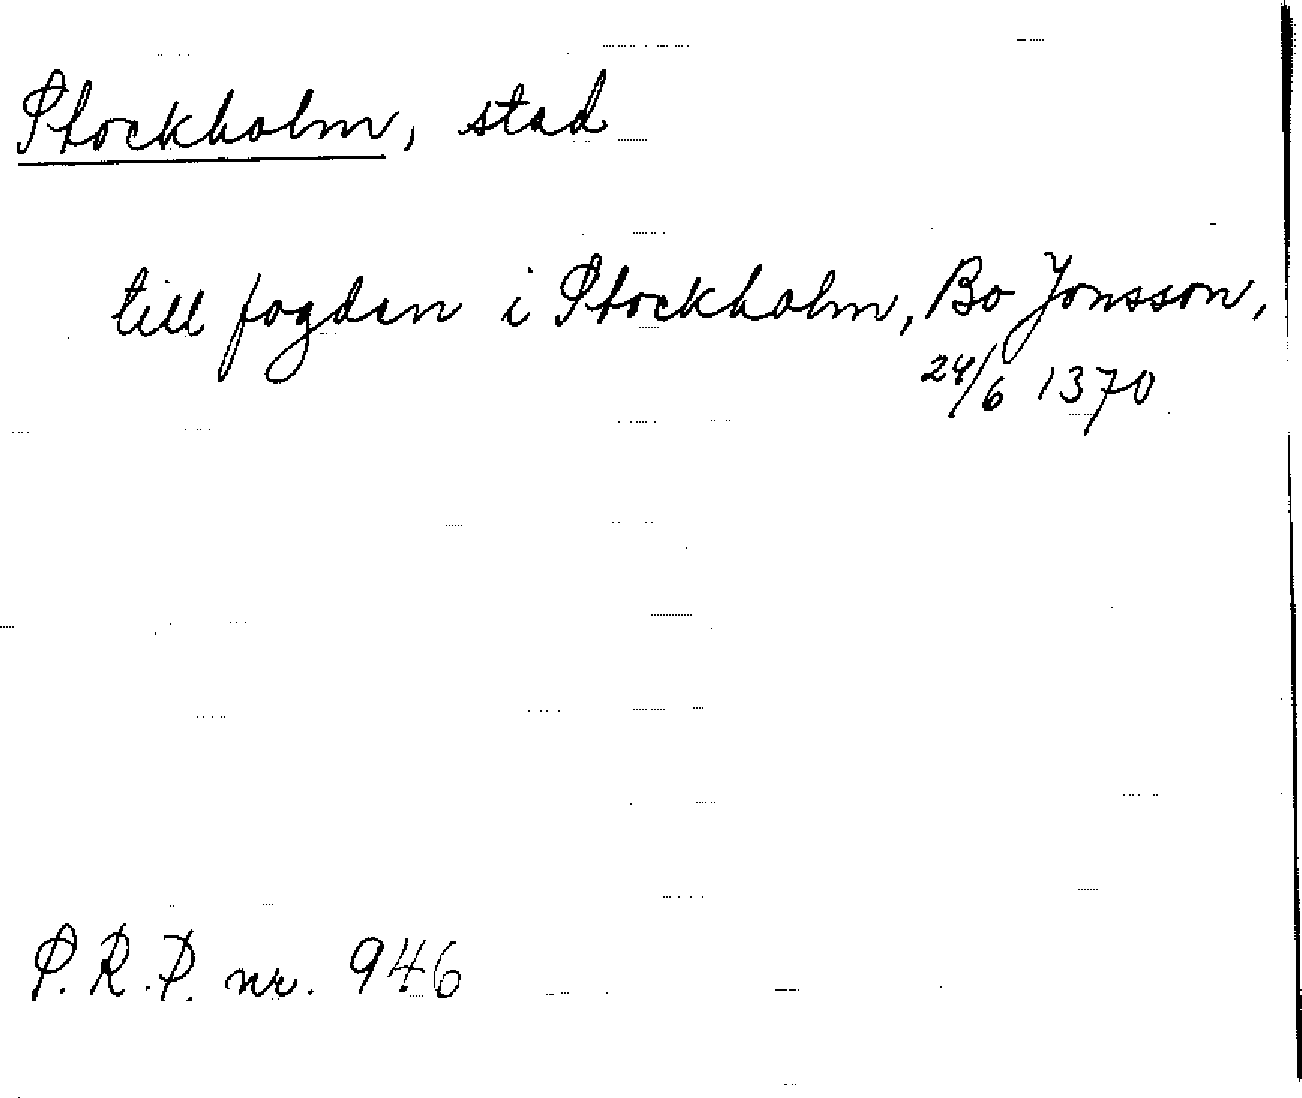 Stockholm, stad
till fogden i Stockholm, Bo Jonsson,
24/6 1370
S.R.P. nr. 946